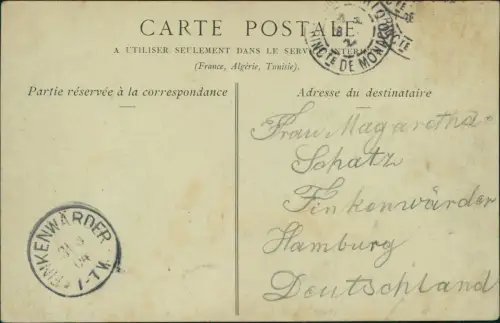 CARTE POSTALE
A UTILISER SEULEMENT DANS LE SERVICE INTERNE
(France, Algérie, Tunisie).
PINCTE DE MONACO
Partie réservée à la correspondance
Adresse du destinataire
Frau Magaretha
Schatz
Finkenwärder
Hamburg
Deutschland
FINKENWÄRDER
04
7-8V.